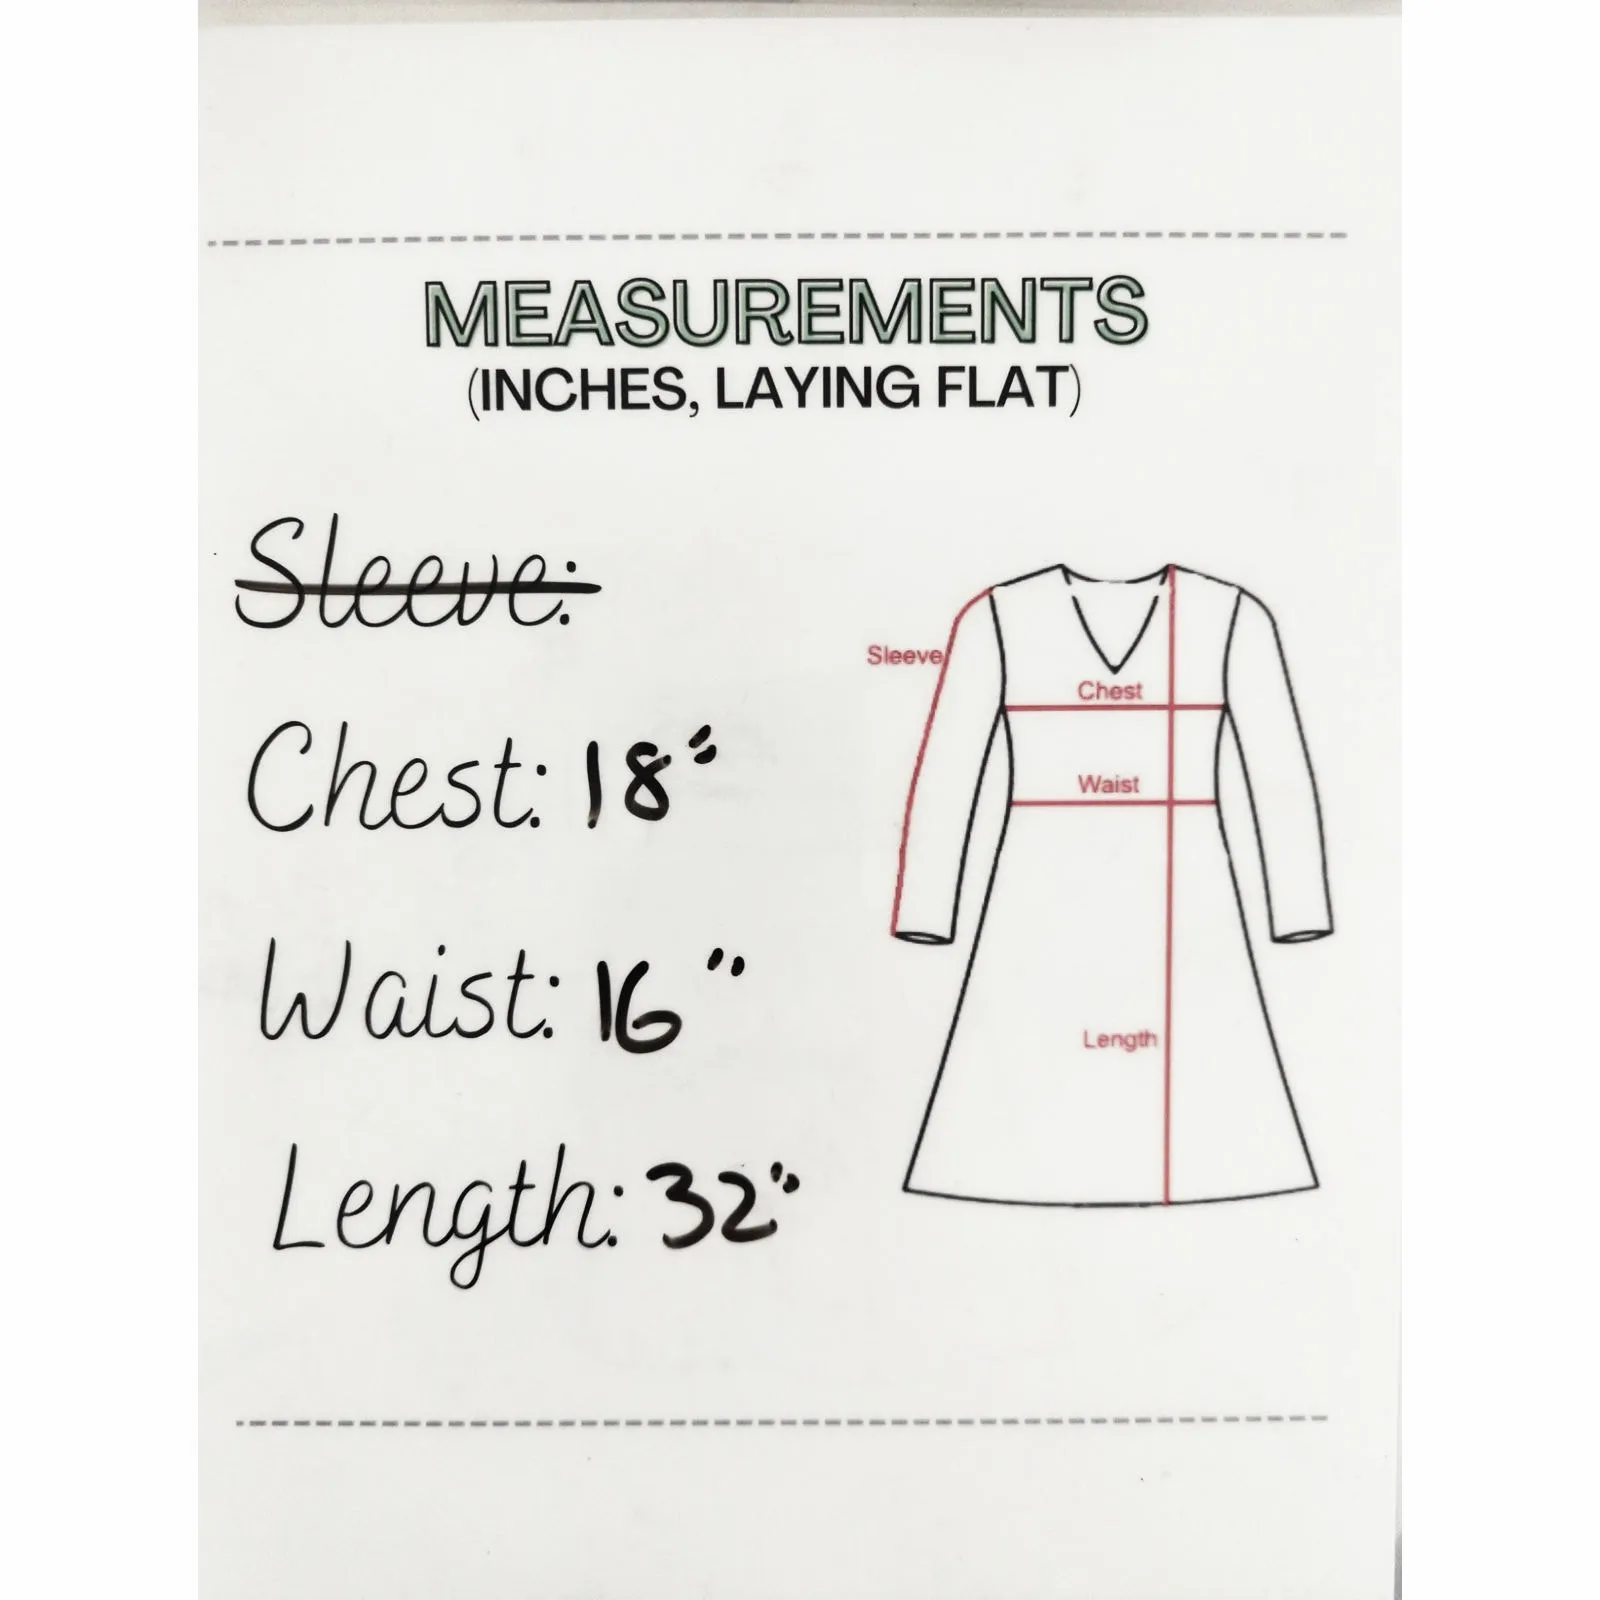 MEASUREMENTS
(INCHES, LAYING FLAT)
Sleeve:
Chest: 18"
Waist: 16"
Length: 32"
Sleeve
Chest
Waist
Length